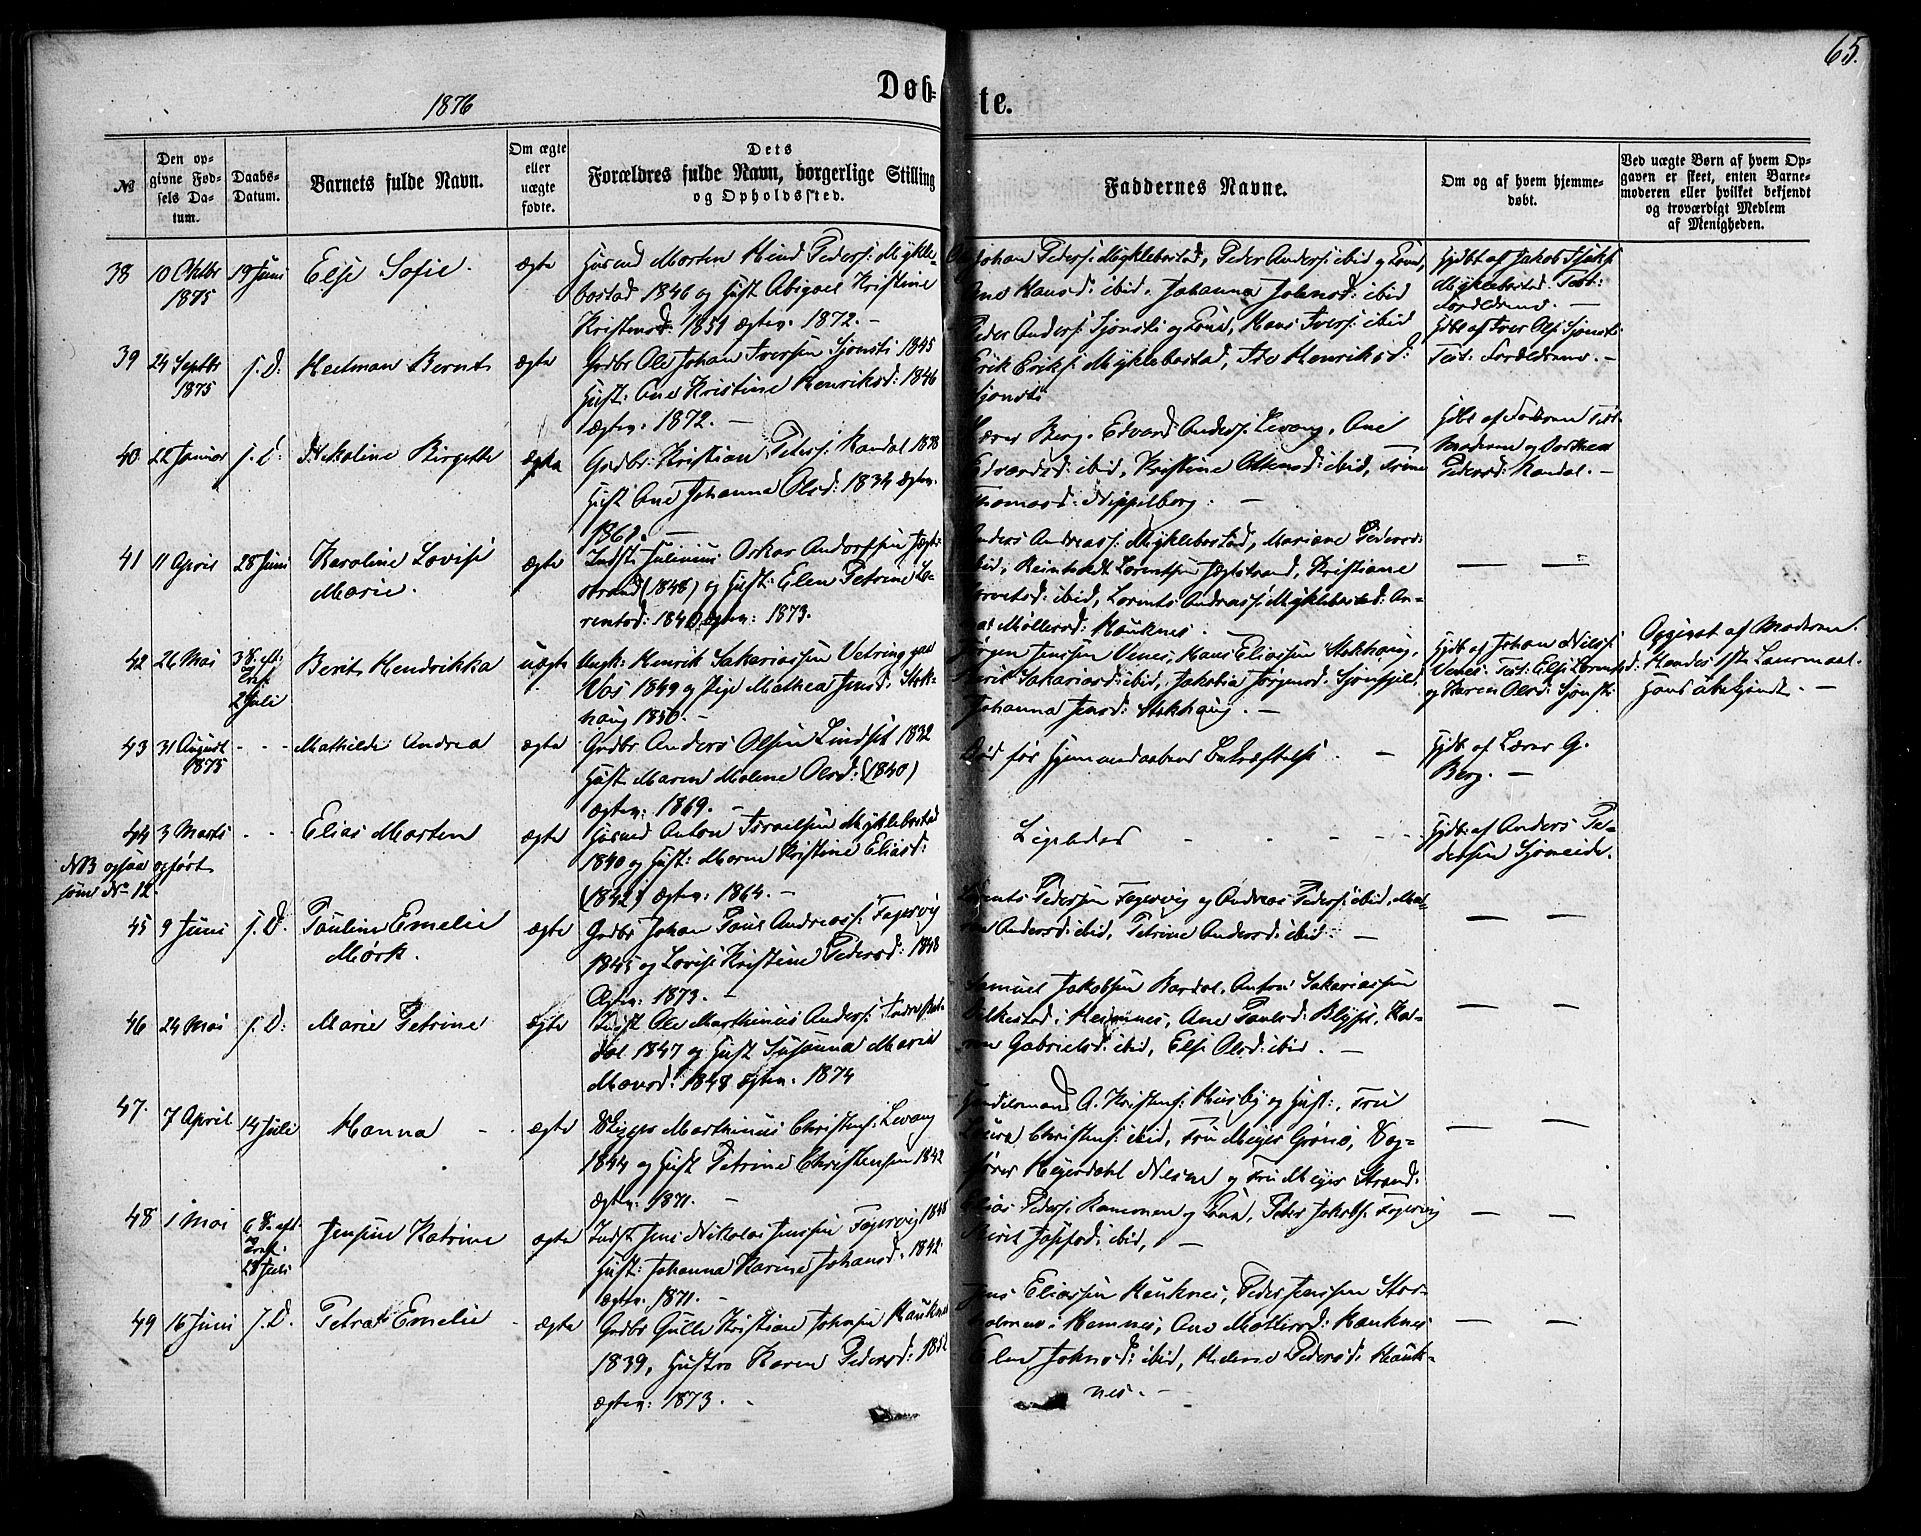 65.
1876
Døb-
te.
№
Den op-
givne Fød-
sels Da-
tum.
Daabs-
Datum.
Barnets fulde Navn.
Om ægte
eller
uægte
fødte.
Dets
Forældres fulde Navn, borgerlige Stilling
og Opholdssted.
Faddernes Navne.
Om og af hvem hjemme-
døbt.
Ved uægte Børn af hvem Op-
gaven er skeet, enten Barne-
moderen eller hvilket bekjendt
og troværdigt Medlem
af Menigheden.
38 10 Oktbr 19 Juni Else Sofie. ægte
1875
Morten Hind Peders: Mykle-
bostad 1846 og Hust Abigael Kristine
Kristensd: 1851 Ægtev. 1872. –
Johan Peders: Myklebostad, Peder Anders: ibid og
Ane Hansd: ibid, Johanna Johnsd: ibid
Hjdbt af Jakob
Myklebostad. Test:
Forældrene. –
39 24 Septbr s. D. Hedman Bernt ægte
1875
Gdbr Ole Johan Iversen Sjonsti 1845
Hust: Ane Kristine Henriksd: 1846
Ægtev. 1872. –
Peder Anders: Sjonsti og Hans Ivers: ibid
Erik Eriks: Myklebostad, Henriksd:
Sjonsti
Hjdbt af Iver Ols: Sjonsti
Test: Forældrene. –
40 22 Januar s. D. Nikoline Birgitte ægte
Gdbr: Kristian Peders: Randal
Hust Ane Johanna Olsd: 1834 Ægtev.
Lærer Berg. Edvard Anders: Levang, Ane
Edvardsd: ibid, Kristine ibid, Trine
Thomasd:
Hjdbt af Faderen Test
Moderen og
Pedersd: Randal. –
41 11 April 28 Juni Karoline Lovise ægte
Marie.
Indst: Julinius Oskar Andorssen Jægt-
strand (1848) og Hust: Elen Petrine Lo-
rentsd: 1840 Ægtev: 1873.
Anders Andreass: Myklebostad, Mariane Pedersd:
ibid, Reinholdt Lorentsen Jægtstrand, Kristiane
ibid, Lorents Andreass: Myklebostad: An-
Møllersd: Hauknes. –
42 26 Mai 3 S. eft: Berit Hendrikka uægte
Tref.
2 Juli
Ungk: Henrik Sakariassen Vetring paa
Vos 1849 og Pige Mathea Jensd: Stok-
haug 1850. –
Jørgen Jenssen Venes, Hans Eliassen Stokhaug,
Berit Sakariasd: ibid, Jakobia Jørgensd: Sjonfjeld
Johanna Jensd: Stokhaug. –
Hjdbt af Johan Nilss:
Venes. Test: Else Lorentsd:
og Karen Olsd: Sjonsti.
Opgivet af Moderen.
Hendes 1ste Leiermaal.
Hans ubekjendt. –
43 31 August - - - Mathilde Andrea ægte
1875
Gdbr Anders Olsen Lindset 1832
Hust Maren Malene Olsd: (1840)
Ægtev: 1869. –
Død før Hjemmedaabens Bekræftelse –
Hjdbt af Lærer G.
Berg. –
44 3 Marts - - - Elias Morten ægte
NB ogsaa opført
som No 12.
Husmd Anton Israelsen Myklebostad
1840 og Hust: Maren Kristine Eliasd:
(1842) Ægtev: 1864. –
Ligeledes - - - - -
Hjdbt: af Anders Pe-
dersen Sjoneide.
45 9 Juni s. D. Pauline Emelie ægte
Mørk.
Gdbr Johan Paul Andreass: Fagervig
1845 og Lovise Kristine Pedersd: 1848
Ægtev: 1873. –
Lorents Pedersen Fagervig og Andreas Peders: ibid, Ma-
ren Andersd: ibid, Petrine Andersd: ibid. –
46 24 Mai s. D: Marie Petrine ægte
Indst Ole Marthinus Anders: Indre Bar-
dal 1847 og Hust Susanna Marie
1848 Ægtev. 1874
Samuel Jakobsen Bardal, Anton Sakariassen
i Hemnes, Ane Paulsd: Ka-
ren Gabrielsd: ibid, Else Olsd: ibid. –
47. 7 April 14 Juli Hanna - - ægte
Marthinus Christens: Levang
1844 og Hust Petrine Christensen 1842
Ægtev: 1871. –
Handelsmand A. Kristens: Husby og Hust:, Fru
Laura Christens: ibid, Fru Meyer Grønø, Fog-
Heyerdahl Nesne og Fru Meyer Strand.
48 1 Mai 6 S. eft Jensine Katrine ægte
Tref:
23 Juli
Indst Jens Nikolai Jenssen Fagervig 1848
Hust: Johanna Karina Johansd: 1842
Ægtev: 1871. –
Elias Peders: og Peter Jakobs: Fagervig
Berit ibid, –
49 16 Juni s. D. Petra Emelie - ægte
Gdbr Gulle Kristian Johnsen Hauknes
1839, Hustro Karen Pedersd: 1852
Ægtev: 1873. -
Jens Eliassen Hauknes, Peder Jenssen Stor-
i Hemnes, Ane Møllersd: Hauknes
Elen Johnsd: ibid, Helene Pedersd: Hauk-
nes. –